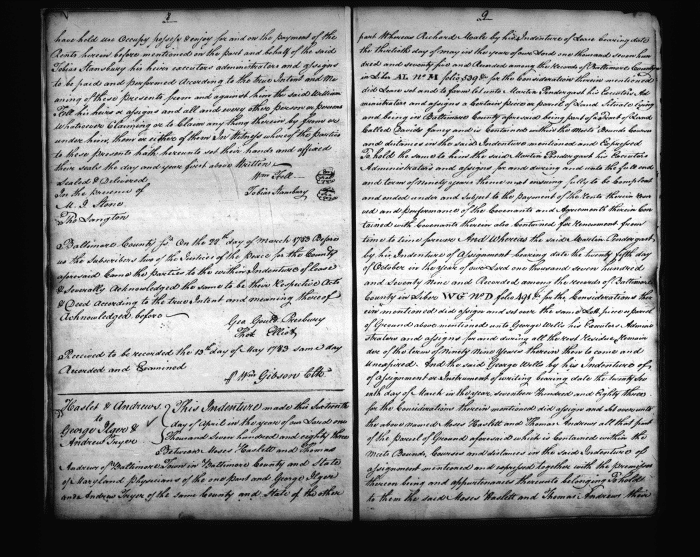 1
have hold use Occupy possess & enjoy for and on the payment of the
Rents herein before mentioned on the part and behalf of the said
Tobias Stansbury his heirs executors administrators and assigns
to be paid and performed According to the true Intent and Me
aning of these presents from and against him the said William
Fell his heirs or assigns and all and every other person or persons
Whatsoever Claiming or to blaim any thing therein by from or
under him, them or either of them In Witness whereof the parties
to these presents hath hereunto set their hands and affixed
their seals the day and year first above Written
Sealed & Delivered
In the presence of
Wm Fell
Tobias Stansbury
M. J. Stone
Tho Langton
Baltimore County Ss. On the 20th day of March 1783 Before
us the Subscribers two of the Justices of the Peace for the County
aforesaid Came the parties to the within Indenture of lease
& Severally Acknowledged the same to be their Respective Acts
& Deed According to the true Intent and meaning thereof
Acknowledged before
Geo Gould Presbury
Thos Elliot
Received to be recorded the 13th day of May 1783 same day
Recorded and Examined
Wm Gibson Clk
Haslet & Andrews
to
George Ilger &
Andrew Fryer
This Indenture made this Sixteenth
day of April in the year of our Lord one
Thousand seven hundred and eighty three
Between Moses Haslett and Thomas
Andrews of Baltimore Town in Baltimore County and State
of Maryland physicians of the one part and George Ilger
and Andrew Fryer of the same County and State of the other
2
part Whereas Richard Moale by his Indenture of Lease bearing date
the thirtieth day of May in the year of our Lord one thousand seven hun
dred and seventy four and Recorded among the Records of Baltimore County
in Liber AL No M folio 539 &c for the Consideration therein mentioned
did Lease set and to farm let unto Martin Pendergast his Executors Ad
ministrators and assigns a Certain piece or parcel of Land Situate lying
and being in Baltimore County aforesaid being part of a Tract of Land
Called Davids fancy and is Contained within the Meets Bounds Courses
and distances in the said Indenture mentioned and Expressed
To hold the same to him the said Martin Pendergast his Executors
Administrators and assigns for and during and unto the full end
and term of Ninety years thence next ensuing fully to be Compleat
and ended under and Subject to the payment of the Rents therein reser
ved and performance of the Covenants and Agreements therein Con
tained with Covenants therein also Contained for Renewment from
time to time forever And Whereas the said Martin Pendergast
by his Indenture of Assignment bearing date the twenty fifth day
of October in the year of our Lord one thousand seven hundred
and Seventy Nine and Recorded among the records of Baltimore
County in Liber WG No D folio 491 &c for the Consideration there
in mentioned did assign and set over the same Lott, piece or parcel
of Ground above mentioned unto George Wells his Executors Adminis
trators and assigns for and during all the Rest Residue & Remain
der of the term of Ninety Nine Years therein then to come and
unexpired. And the said George Wells by his Indenture of
of assignment or Instrument of writing bearing date the twenty Sev
enth day of March in the year Seventeen Hundred and Eighty three
for the Consideration therein mentioned did assign and set over unto
the above named Moses Haslett and Thomas Andrews all that part
of the parcel of Ground aforesaid which is Contained within the
Meets Bounds, Courses and distances in the said Indenture of
assignment mentioned and expressed together with the premises
thereon being and appurtenances thereunto belonging To hold
to them the said Moses Haslett and Thomas Andrews their